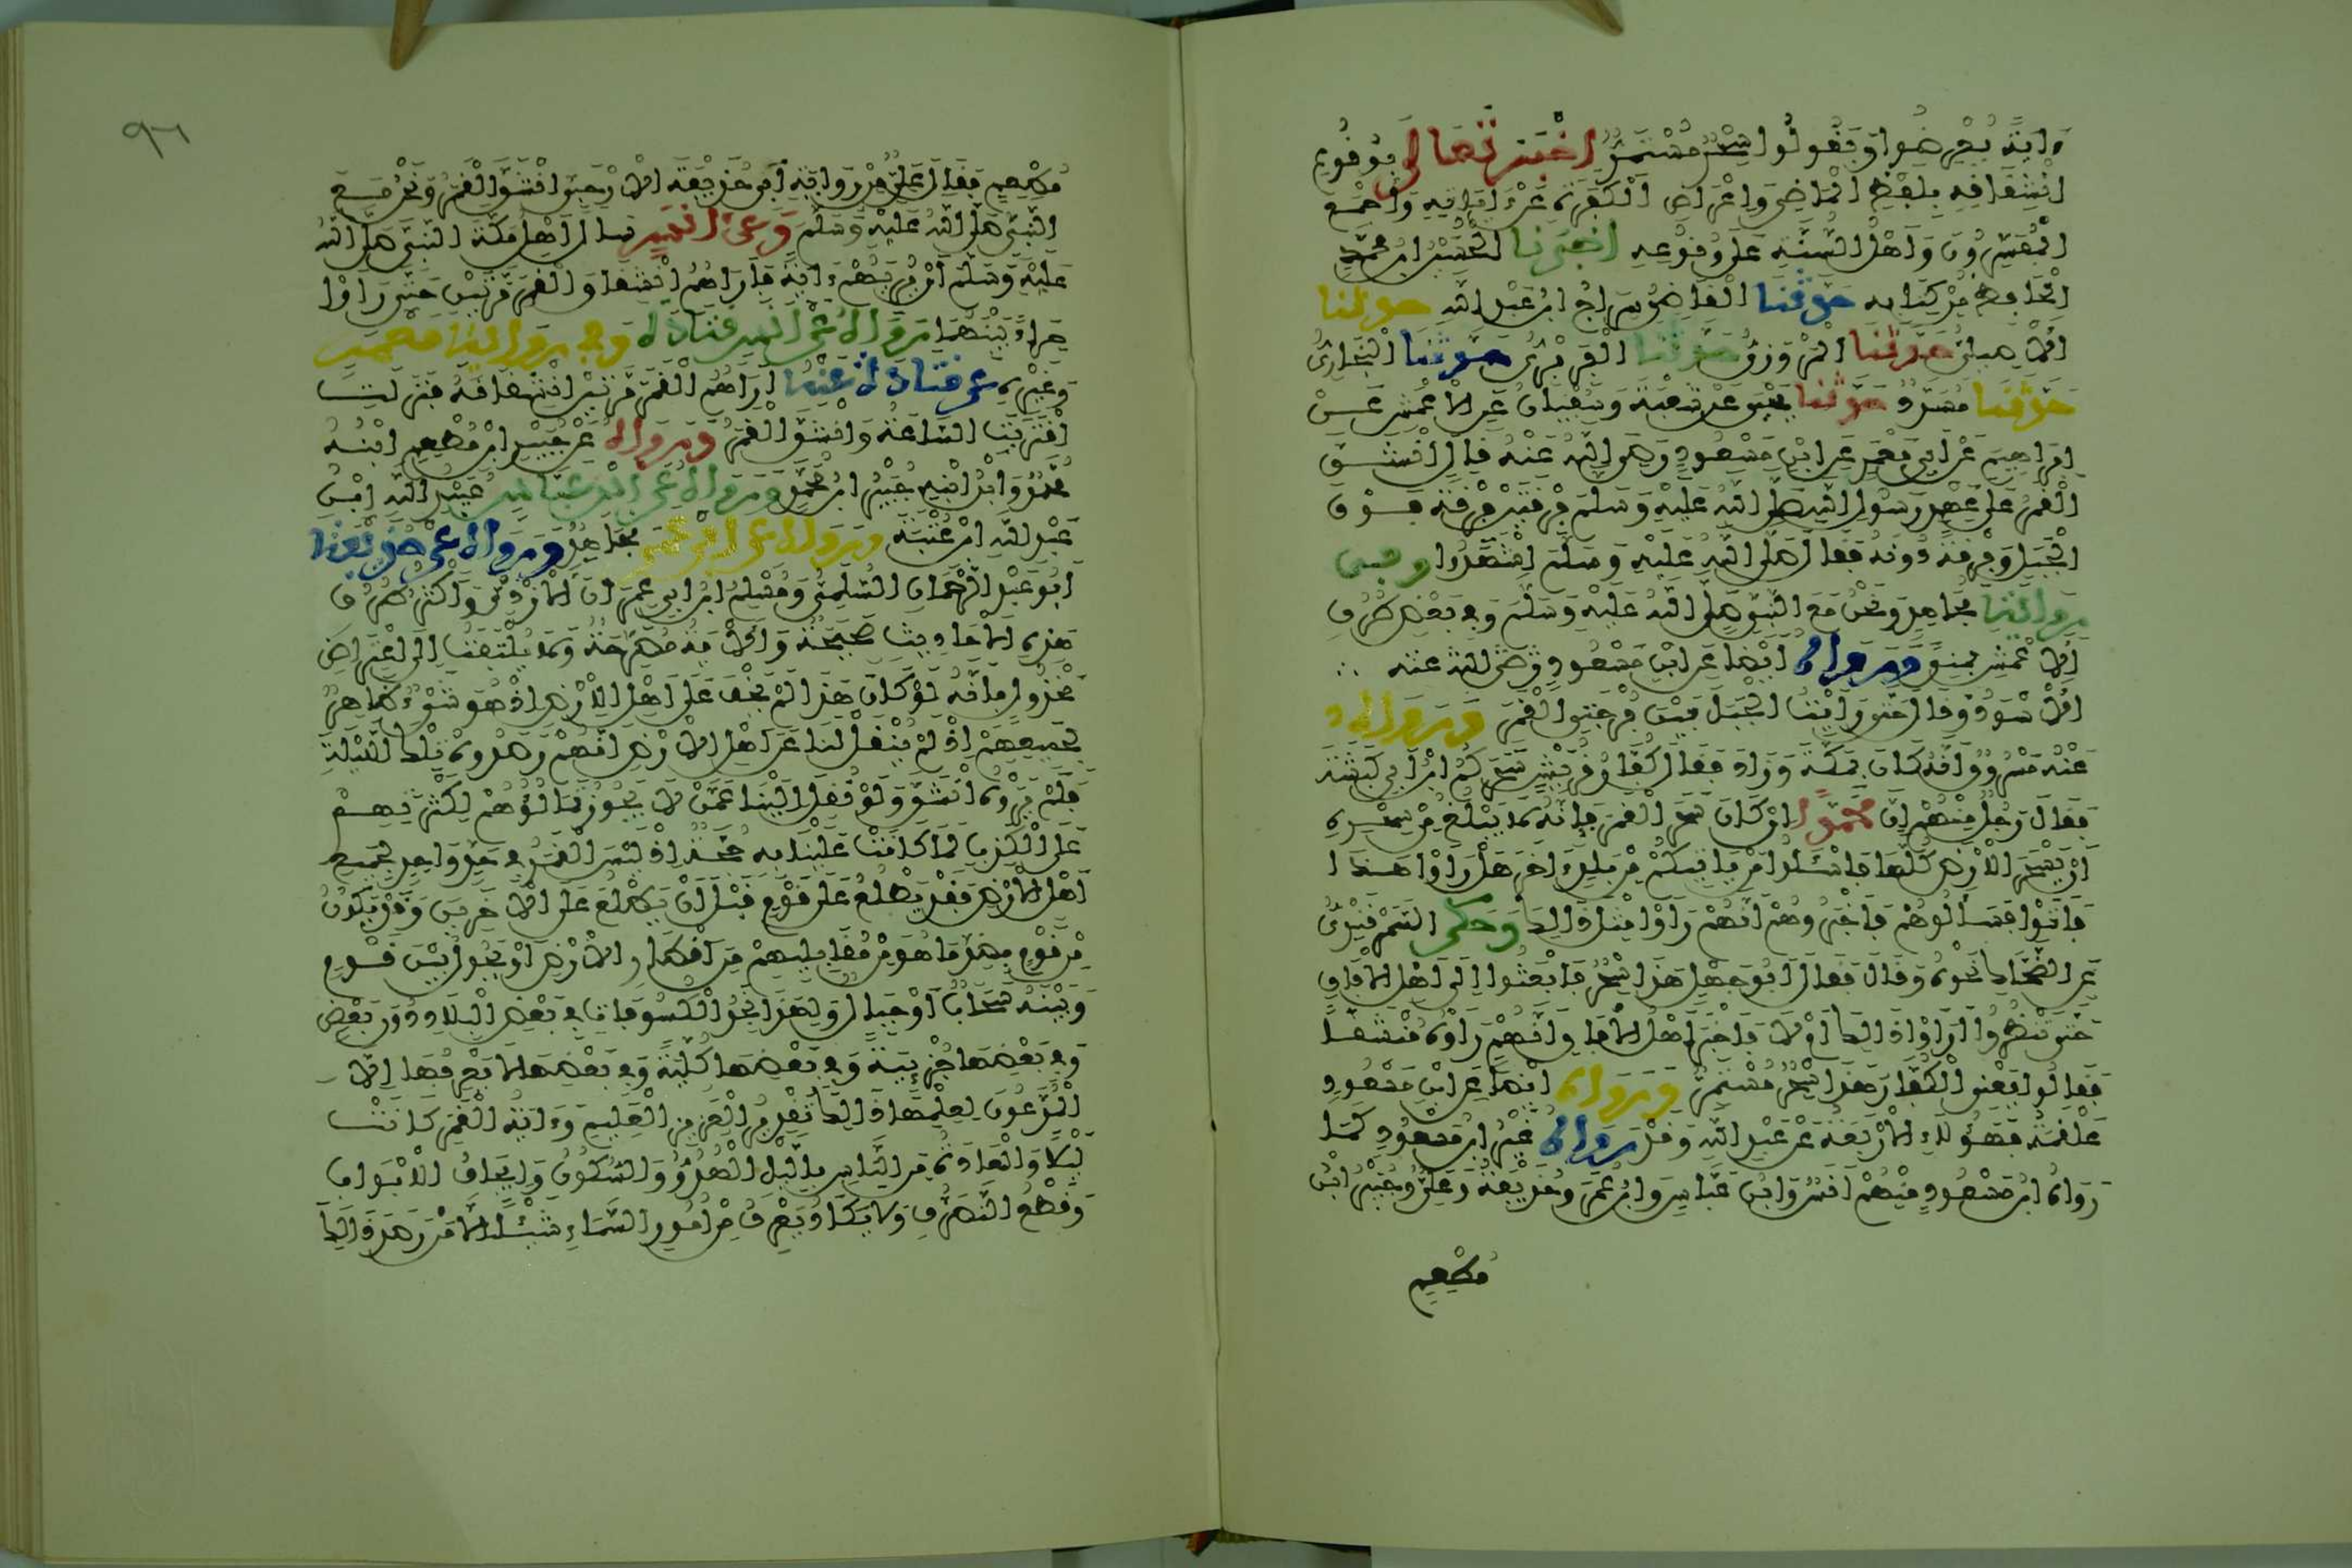 ءاية يعرضوا ويقولوا سحر مستمر اخبر تعالى بوقوع
انشقاقه بلفظ الماضي واعراض الكفرة عن ءاياته واجمع
المفسرون واهل السنة على وقوعه اخبرنا الحسين ابن محمد
الحافظ من كتابه حدثنا القاضي سراج ابن عبد الله حدثنا
الاصيلي حدثنا المروزي حدثنا الفربري حدثنا البخاري
حدثنا مسدد حدثنا يحيى عن شعبة وسفيان عن الاعمش عن
ابراهيم عن ابي معمر عن ابن مسعود رضي الله عنه قال انشق
القمر على عهد رسول الله صلى الله عليه وسلم فرقتين فرقة فوق
الجبل وفرقة دونه فقال صلى الله عليه وسلم اشهدوا وفي
رواية مجاهد ونحن مع النبي صلى الله عليه وسلم وفي بعض طرق
الاعمش بمنى ورواه ايضا عن ابن مسعود رضي الله عنه
الاسود وقال حتى رأيت الجبل بين فرجتي القمر ورواه
عنه مسروق انه كان بمكة وزاد فقال كفار قريش سحركم ابن ابي كبشة
فقال رجل منهم ان محمدا ان كان سحر القمر فانه لا يبلغ من سحره
ان يسحر الارض كلها فاسئلوا من ياتيكم من بلد ءاخر هل راوا هذا
فاتوا فسالوهم فاخبروهم انهم راوا مثل ذالك وحكى السمرقندي
عن الضحاك نحوه وقال فقال ابو جهل هذا سحر فابعثوا الى اهل الافاق
حتى تنظروا أراوا ذالك ام لا فاخبر اهل الافاق انهم راوه منشقا
فقالوا يعني الكفار هذا سحر مستمر ورواه ايضا عن ابن مسعود
علقمة فهؤلاء الاربعة عن عبد الله وقد رواه غير ابن مسعود كما
رواه ابن مسعود منهم انس وابن عباس وابن عمر وحذيفة وعلي وجبير ابن
مطعم
٩٦
مطعم فقال علي من رواية ابي حذيفة الارحبي انشق القمر ونحن مع
النبي صلى الله عليه وسلم وعن انس سال اهل مكة النبي صلى الله
عليه وسلم ان يريهم ءاية فاراهم انشقاق القمر مرتين حتى راوا
حراء بينهما رواه عن انس قتادة وفي رواية معمر
وغيره عن قتادة عنه اراهم القمر مرتين انشقاقه فنزلت
اقتربت الساعة وانشق القمر ورواه عن جبير ابن مطعم ابنه
محمد وابن ابنه جبير ابن محمد ورواه عن ابن عباس عبيد الله ابن
عبد الله ابن عتبة ورواه عن ابن عمر مجاهد ورواه عن حذيفة
ابو عبد الرحمان السلمي ومسلم ابن ابي عمران الازدي واكثر طرق
هذه الاحاديث صحيحة والاية مصرحة ولا يلتفت الى اعتراض
مخذول بانه لو كان هذا لم يخف على اهل الارض اذ هو شيء ظاهر
لجميعهم اذ لم ينقل لنا عن اهل الارض انهم رصدوه تلك الليلة
فلم يروه انشق ولو نقل الينا عمن لا يجوز تمالؤهم لكثرتهم
على الكذب لما كانت علينا به حجة اذ ليس القمر في حد واحد لجميع
اهل الارض فقد يطلع على قوم قبل ان يطلع على الاخرين وقد يكون
من قوم بضد ما هو من مقابليهم من اقطار الارض او يحول بين قوم
وبينه سحاب او جبال ولهذا نجد الكسوفات في بعض البلاد دون بعض
وفي بعضها جزئية وفي بعضها كلية وفي بعضها لا يعرفها الا
المدعون لعلمها ذالك تقدير العزيز العليم وءاية القمر كانت
ليلا والعادة من الناس بالليل الهدؤ والسكون وايجاف الابواب
وقطع التصرف ولا يكاد يعرف من امور السماء شيئا الا من رصد ذالك